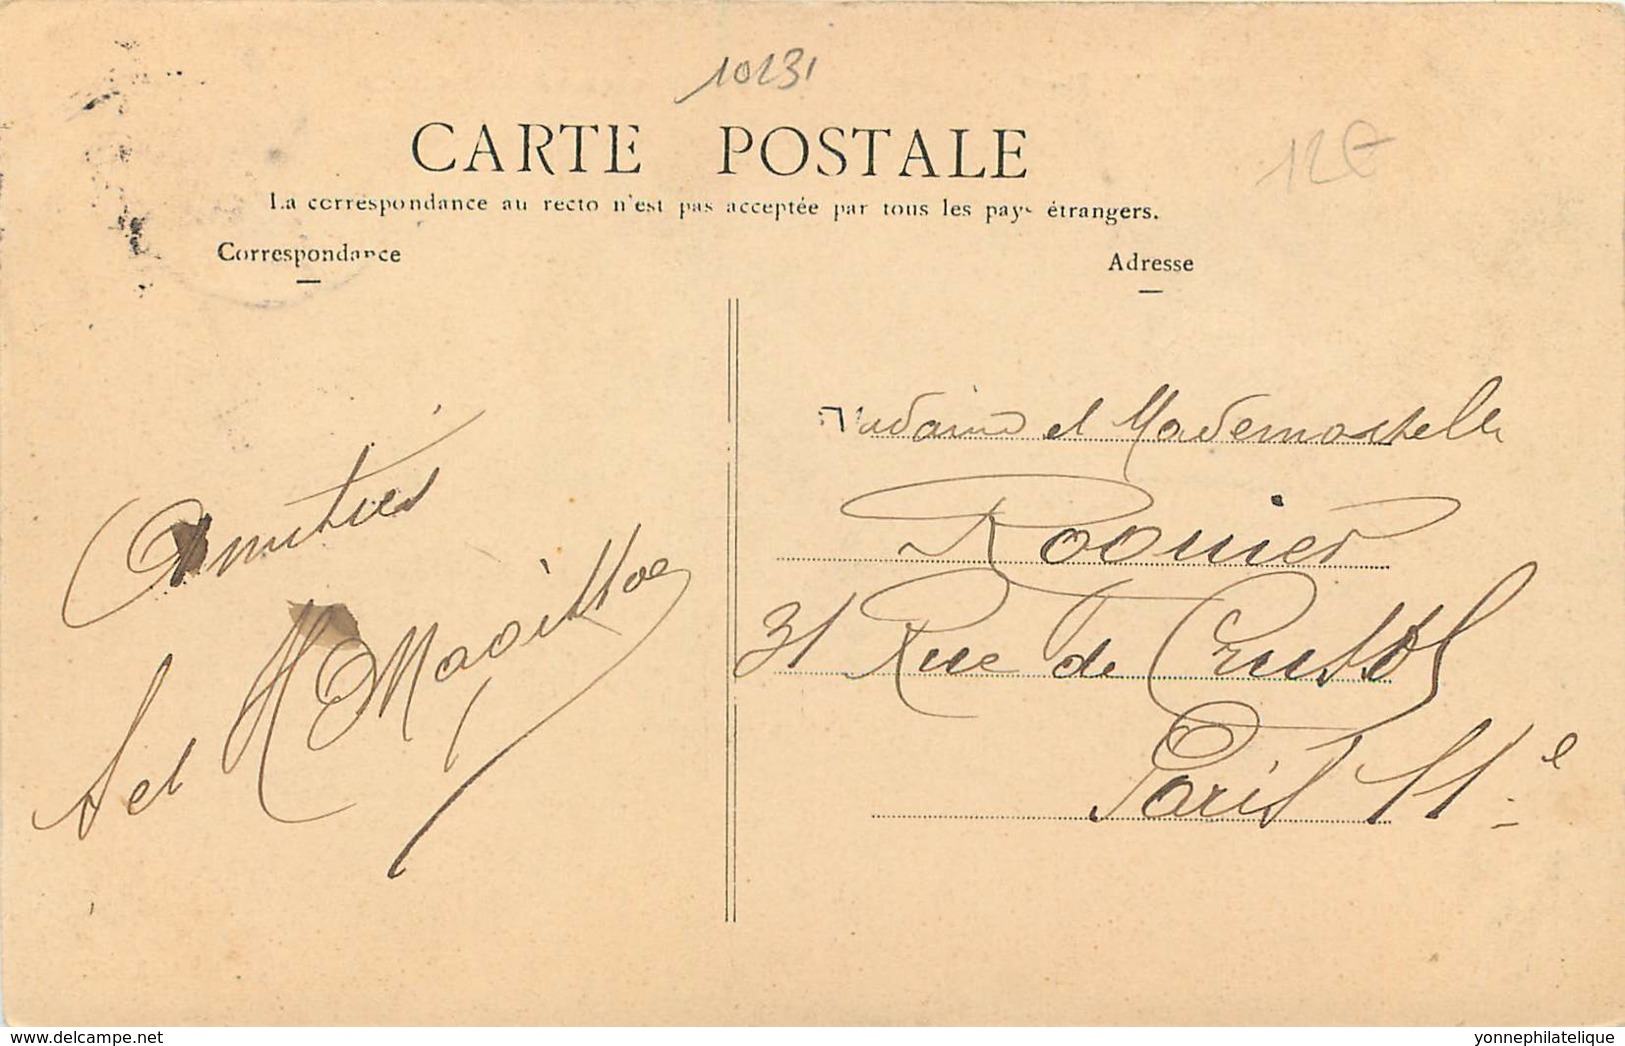 10231
CARTE POSTALE
12€
La correspondance au recto n'est pas acceptée par tous les pays étrangers.
Correspondance
Adresse
Madame et Mademoiselle
Amitiés
31 Rue de Crussol
Paris 11e
delcampe.net
yonnephilatelique